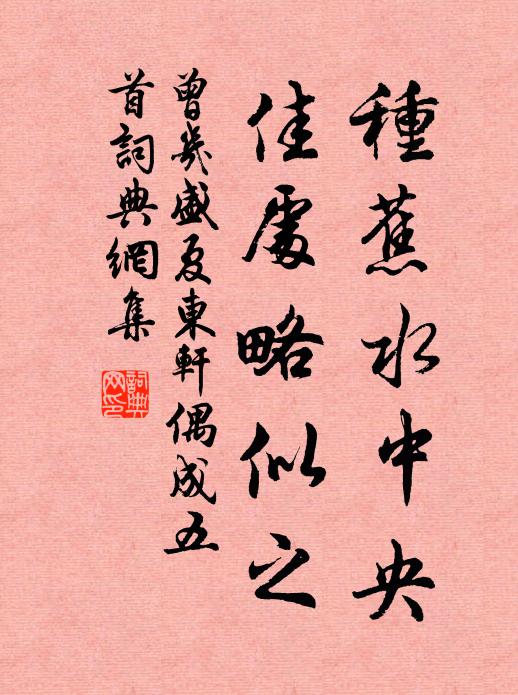 種蕉水中央
佳處略似之
曾幾盛夏東軒偶成五
首詞典網集
詞典
网印